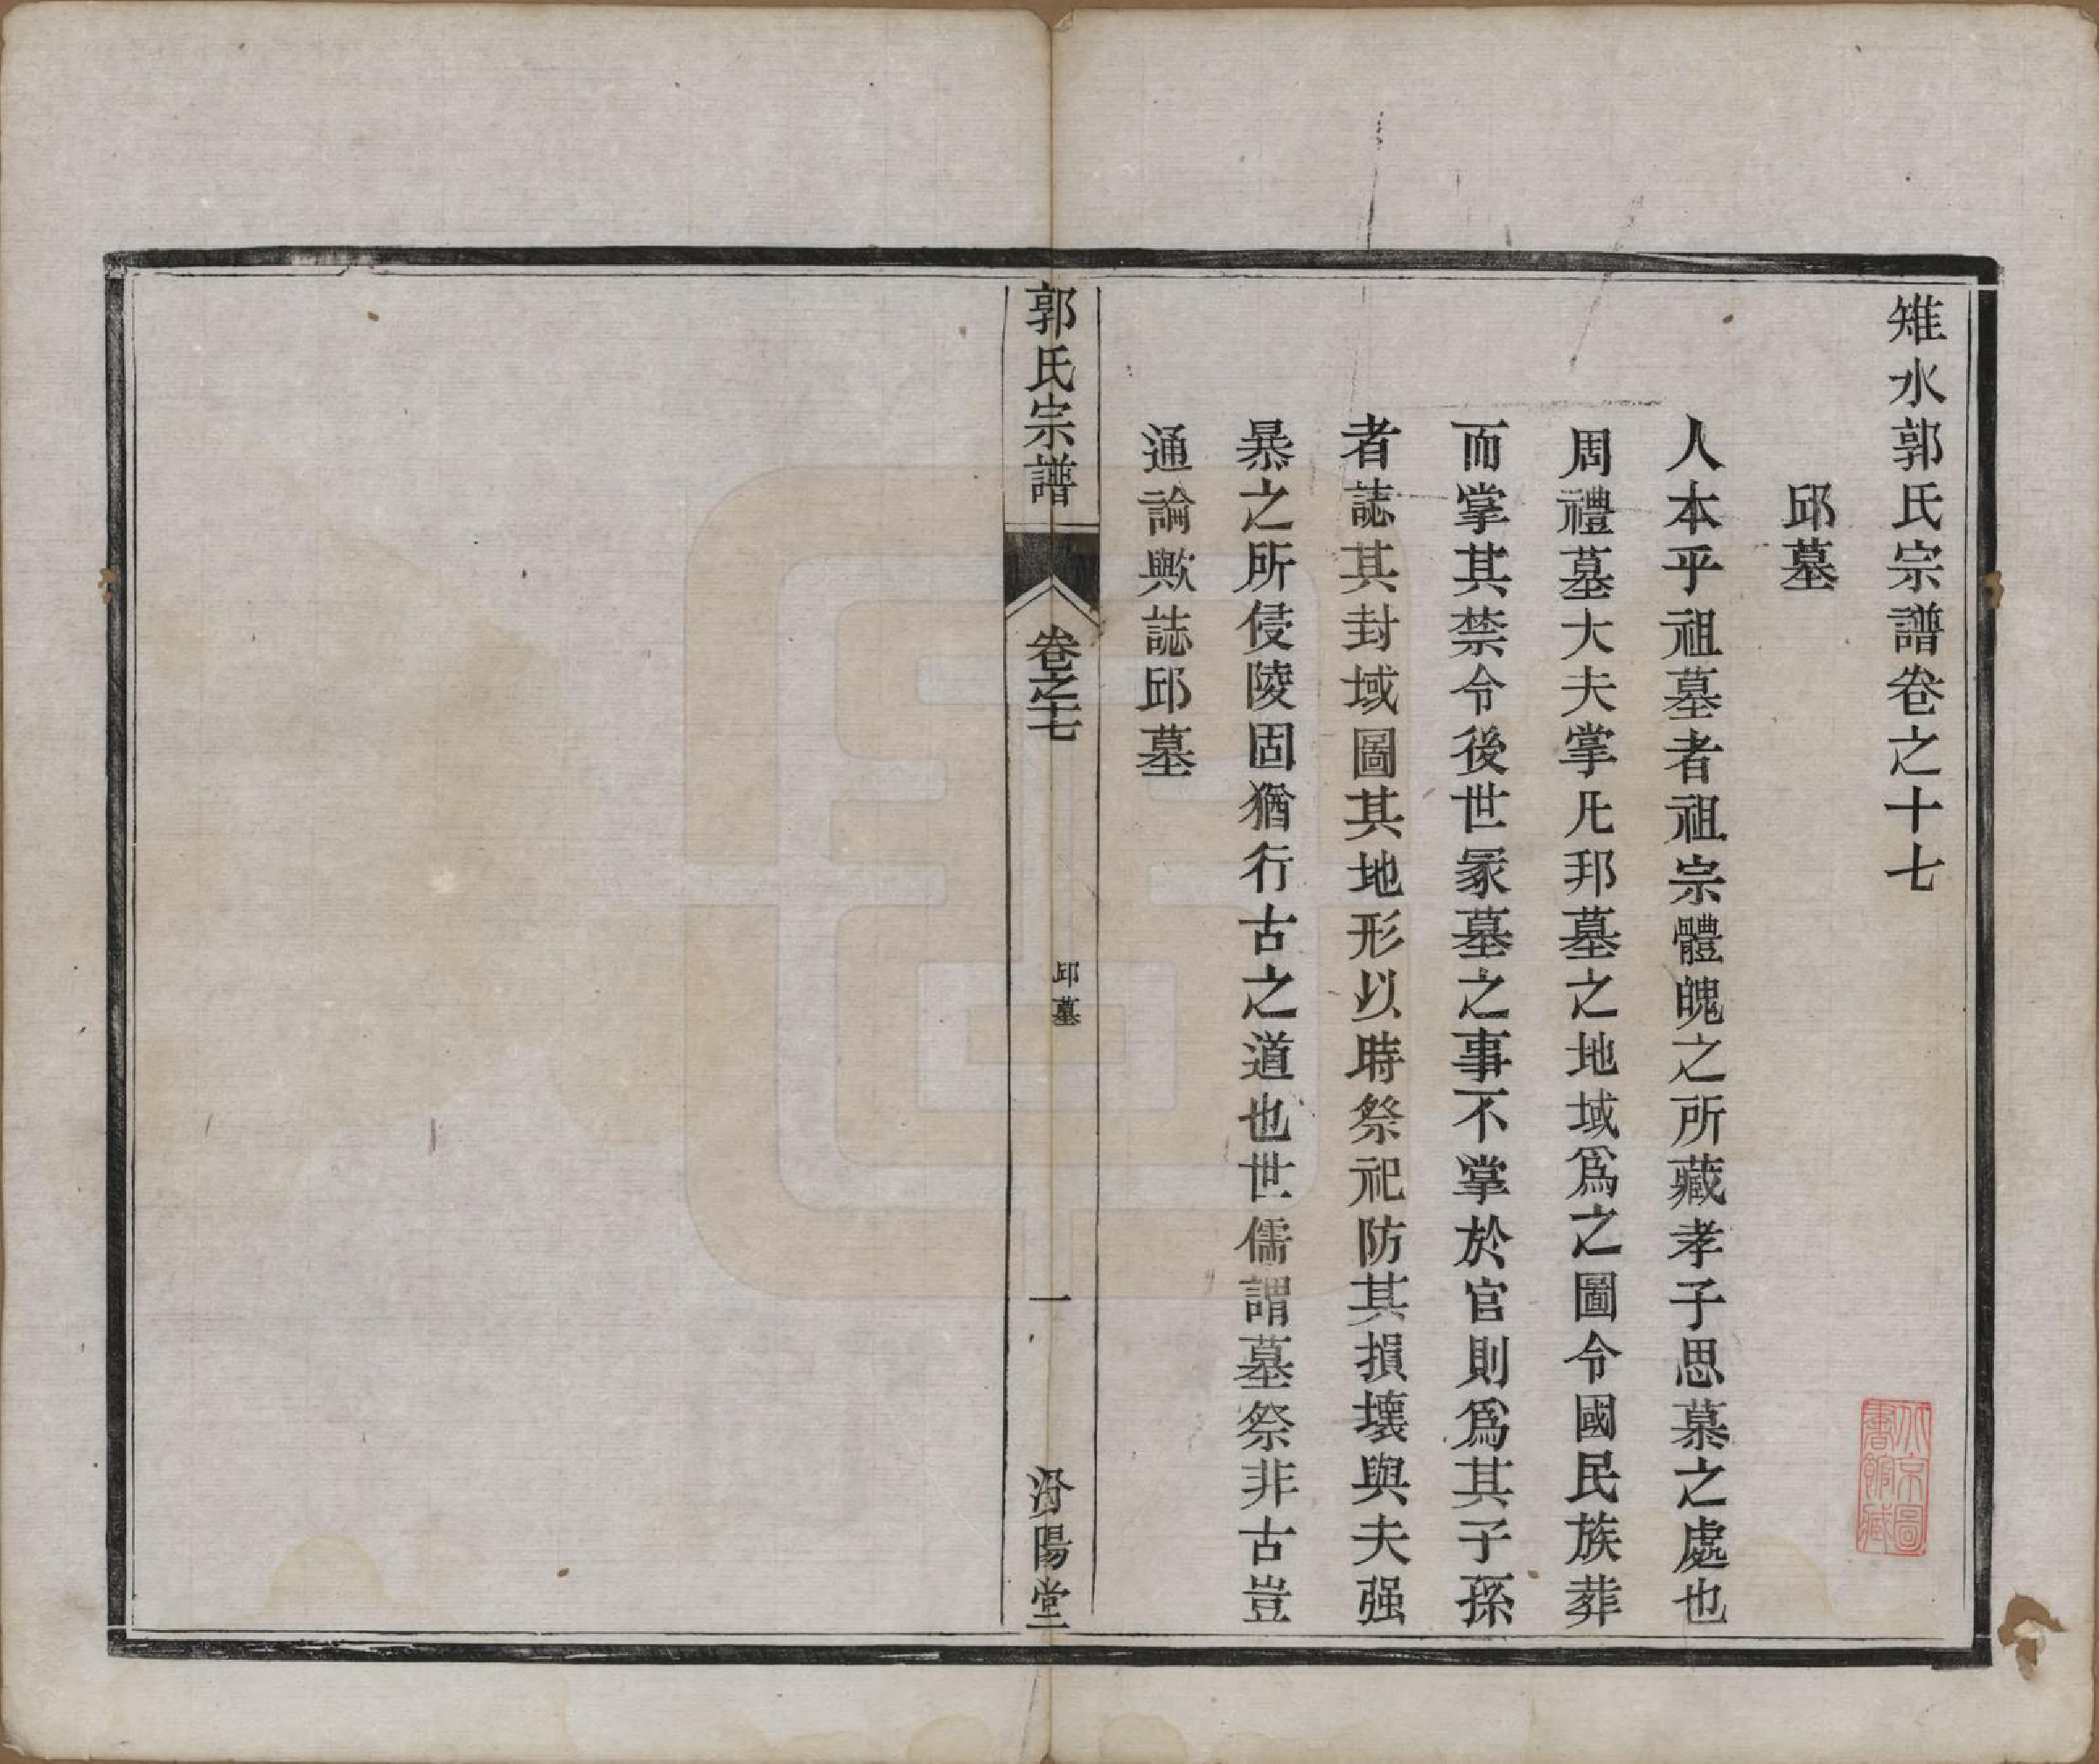 雉水郭氏宗譜卷之十七
邱墓
人本乎祖墓者祖宗體魄之所藏孝子思慕之處也
周禮墓大夫掌凡邦墓之地域爲之圖令國民族葬
而掌其禁令後世冢墓之事不掌於官則爲其子孫
者誌其封域圖其地形以時祭祀防其損壞與夫强
暴之所侵陵固猶行古之道也世儒謂墓祭非古豈
通論歟誌邱墓
郭氏宗譜
卷之十七
邱墓
一
汾陽堂
北京圖
書館藏